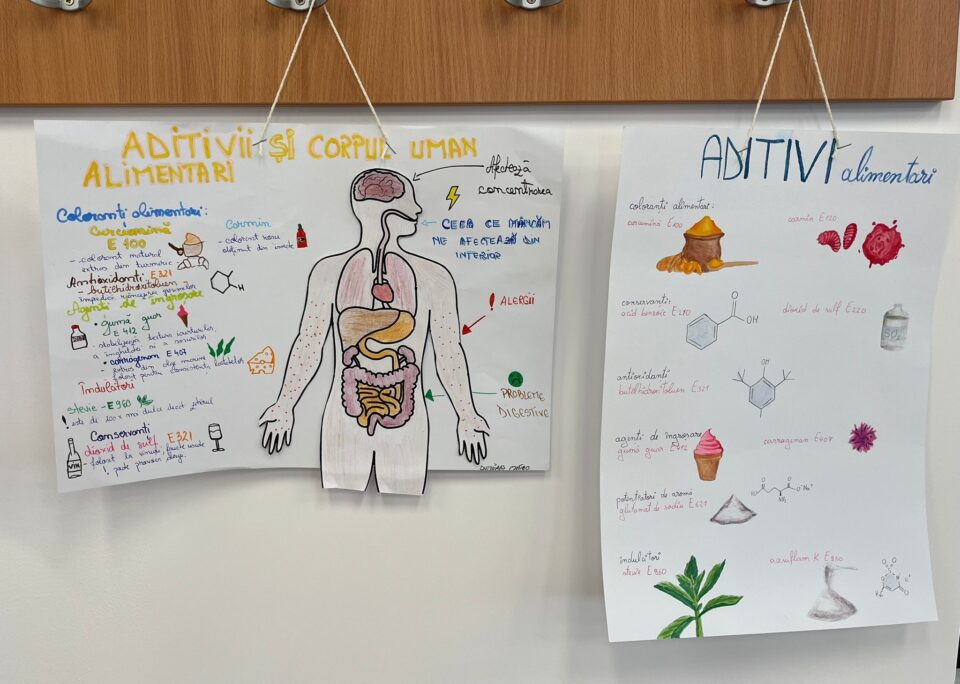 ADITIVII ȘI CORPUL UMAN
ALIMENTARI
Coloranti alimentari:
Curcumină
E 100
- colorant natural
extras din turmeric
Antioxidanti E321
- butilhidroxitoluen
împiedică râncezirea grăsimilor
Agenti de îngrosare
• gumă guar
E 412
stabilizează textura
a înghețate si a sosurilor
• carragenan E 407
extras din alge marine
folosit pentru consistenta
Îndulcitori
stevie - E960
este de 200x mai dulce decît zahărul
Conservanti
dioxid de sulf E321
- folosit la vinuri, fructe uscate
! poate provoca alergii
VIN
Carmin
- colorant rosu
obtinut din insecte
H
Afectează
concentrarea
CEEA CE MÂNCĂM
NE AFECTEAZĂ DIN
INTERIOR
! ALERGII
PROBLEME
DIGESTIVE
ADITIVI alimentari
coloranti alimentari:
curcumină E100
carmin E120
conservanti:
acid benzoic E210
O
OH
dioxid de sulf E220
SO₂
antioxidanti
butilhidroxitoluen E321
OH
agenti de îngrosare
gumă guar E412
carragenan E407
potentiatori de aromă
glutamat de sodiu E621
îndulcitori
stevie E960
acesulfam K E950